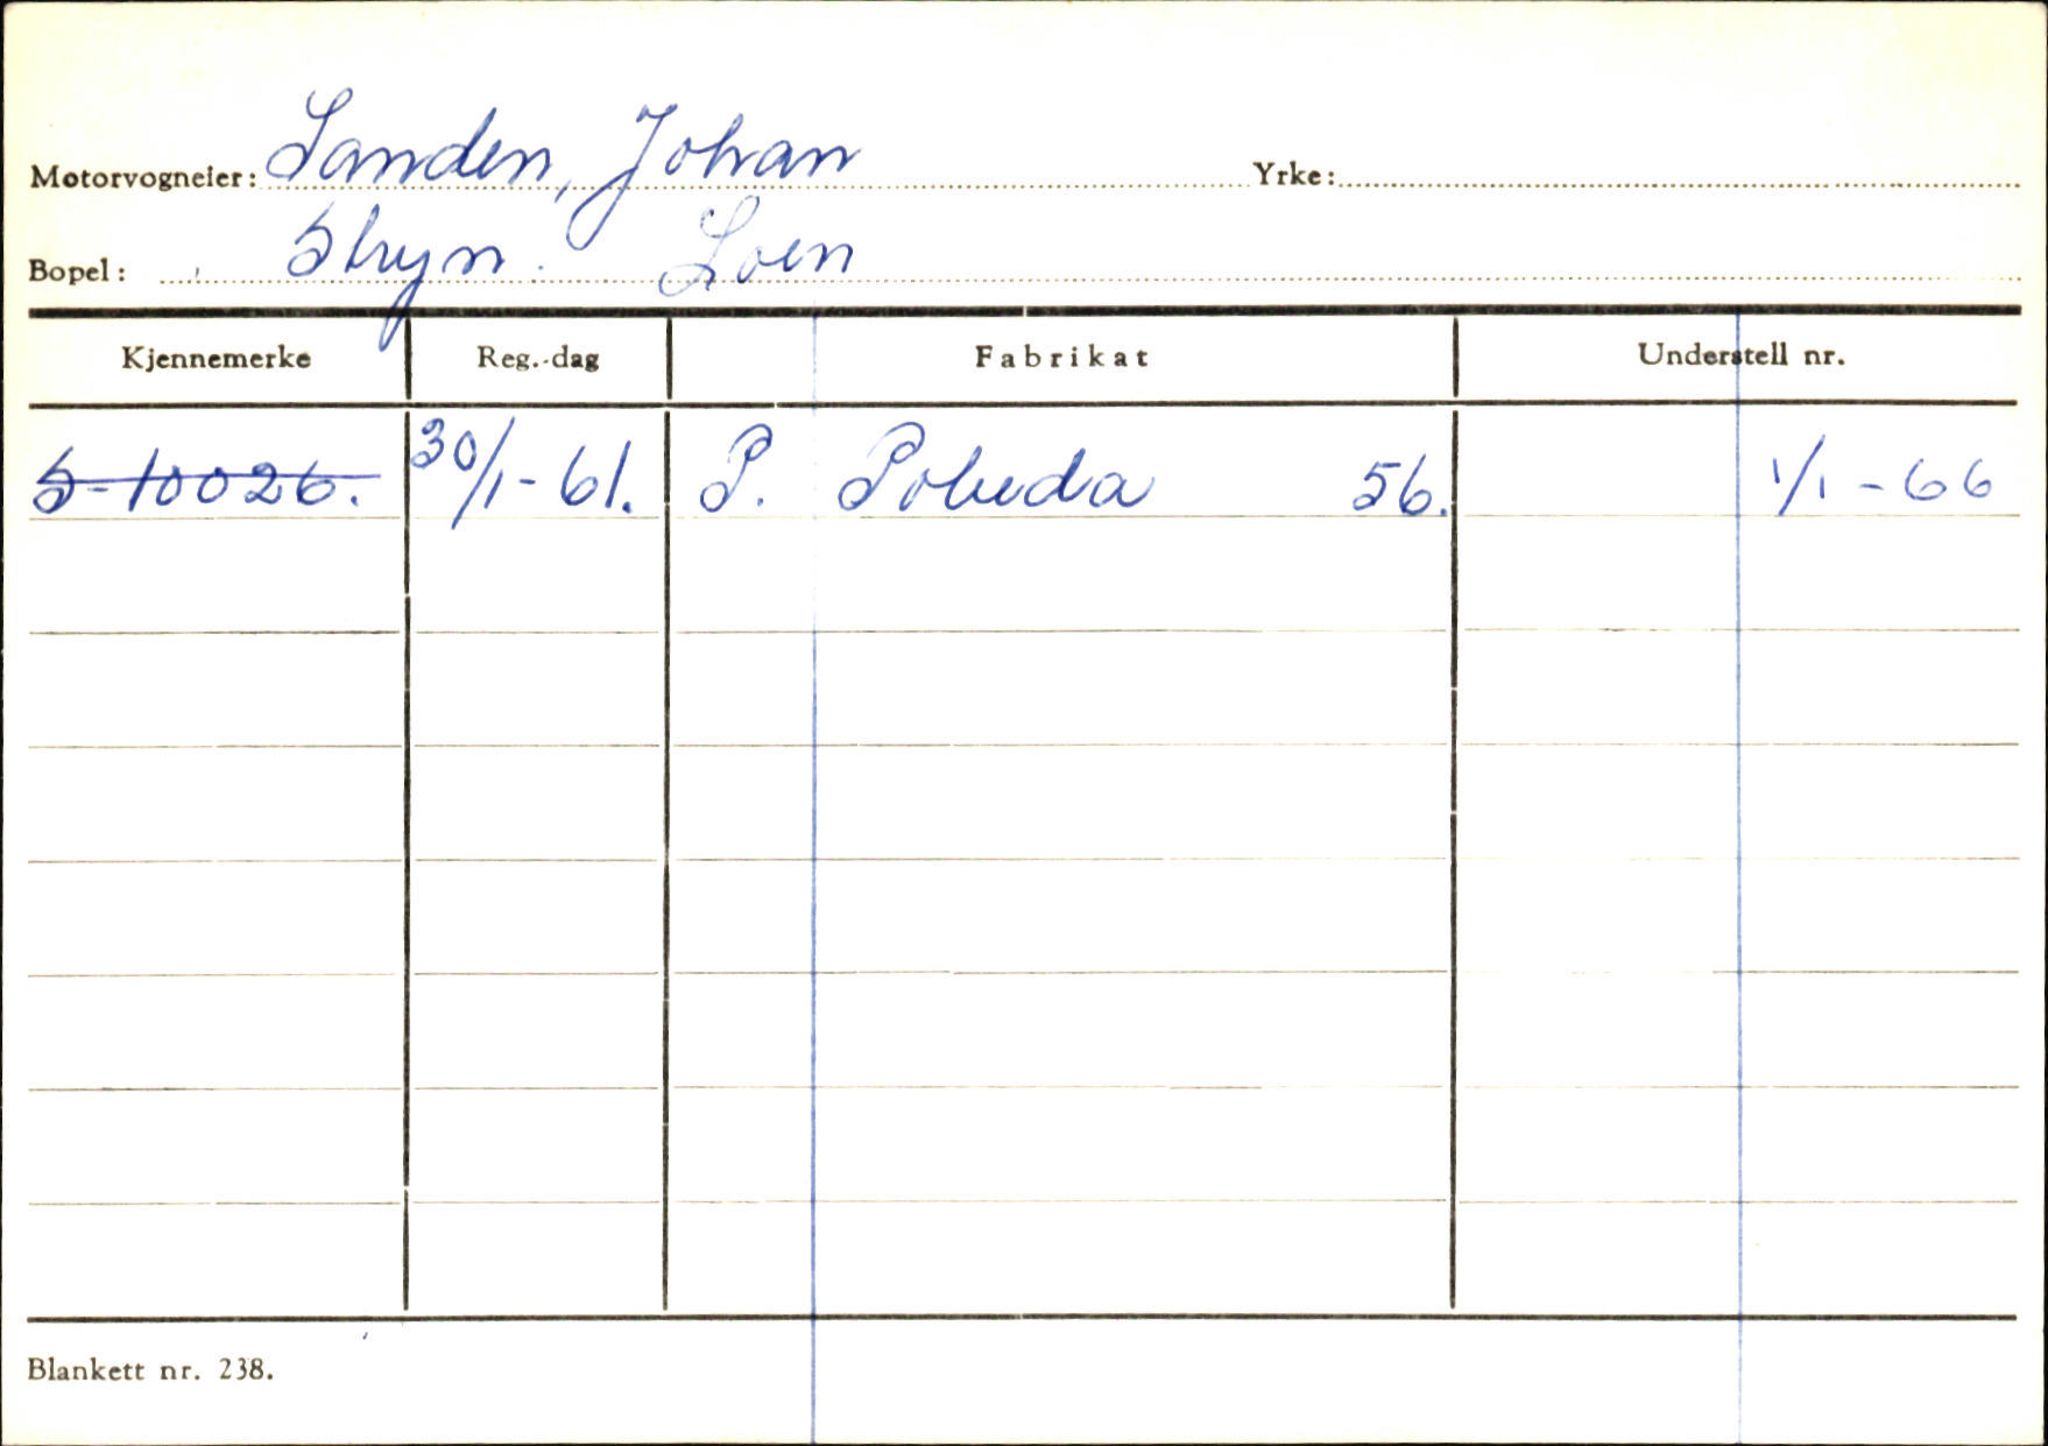 Motorvogneier: Sanden, Johan Yrke:
Bopel: Stryn. Loen
Kjennemerke Reg.-dag Fabrikat Understell nr.
S-10026. 30/1-61. P. Pobeda 56. 1/1-66
Blankett nr. 238.